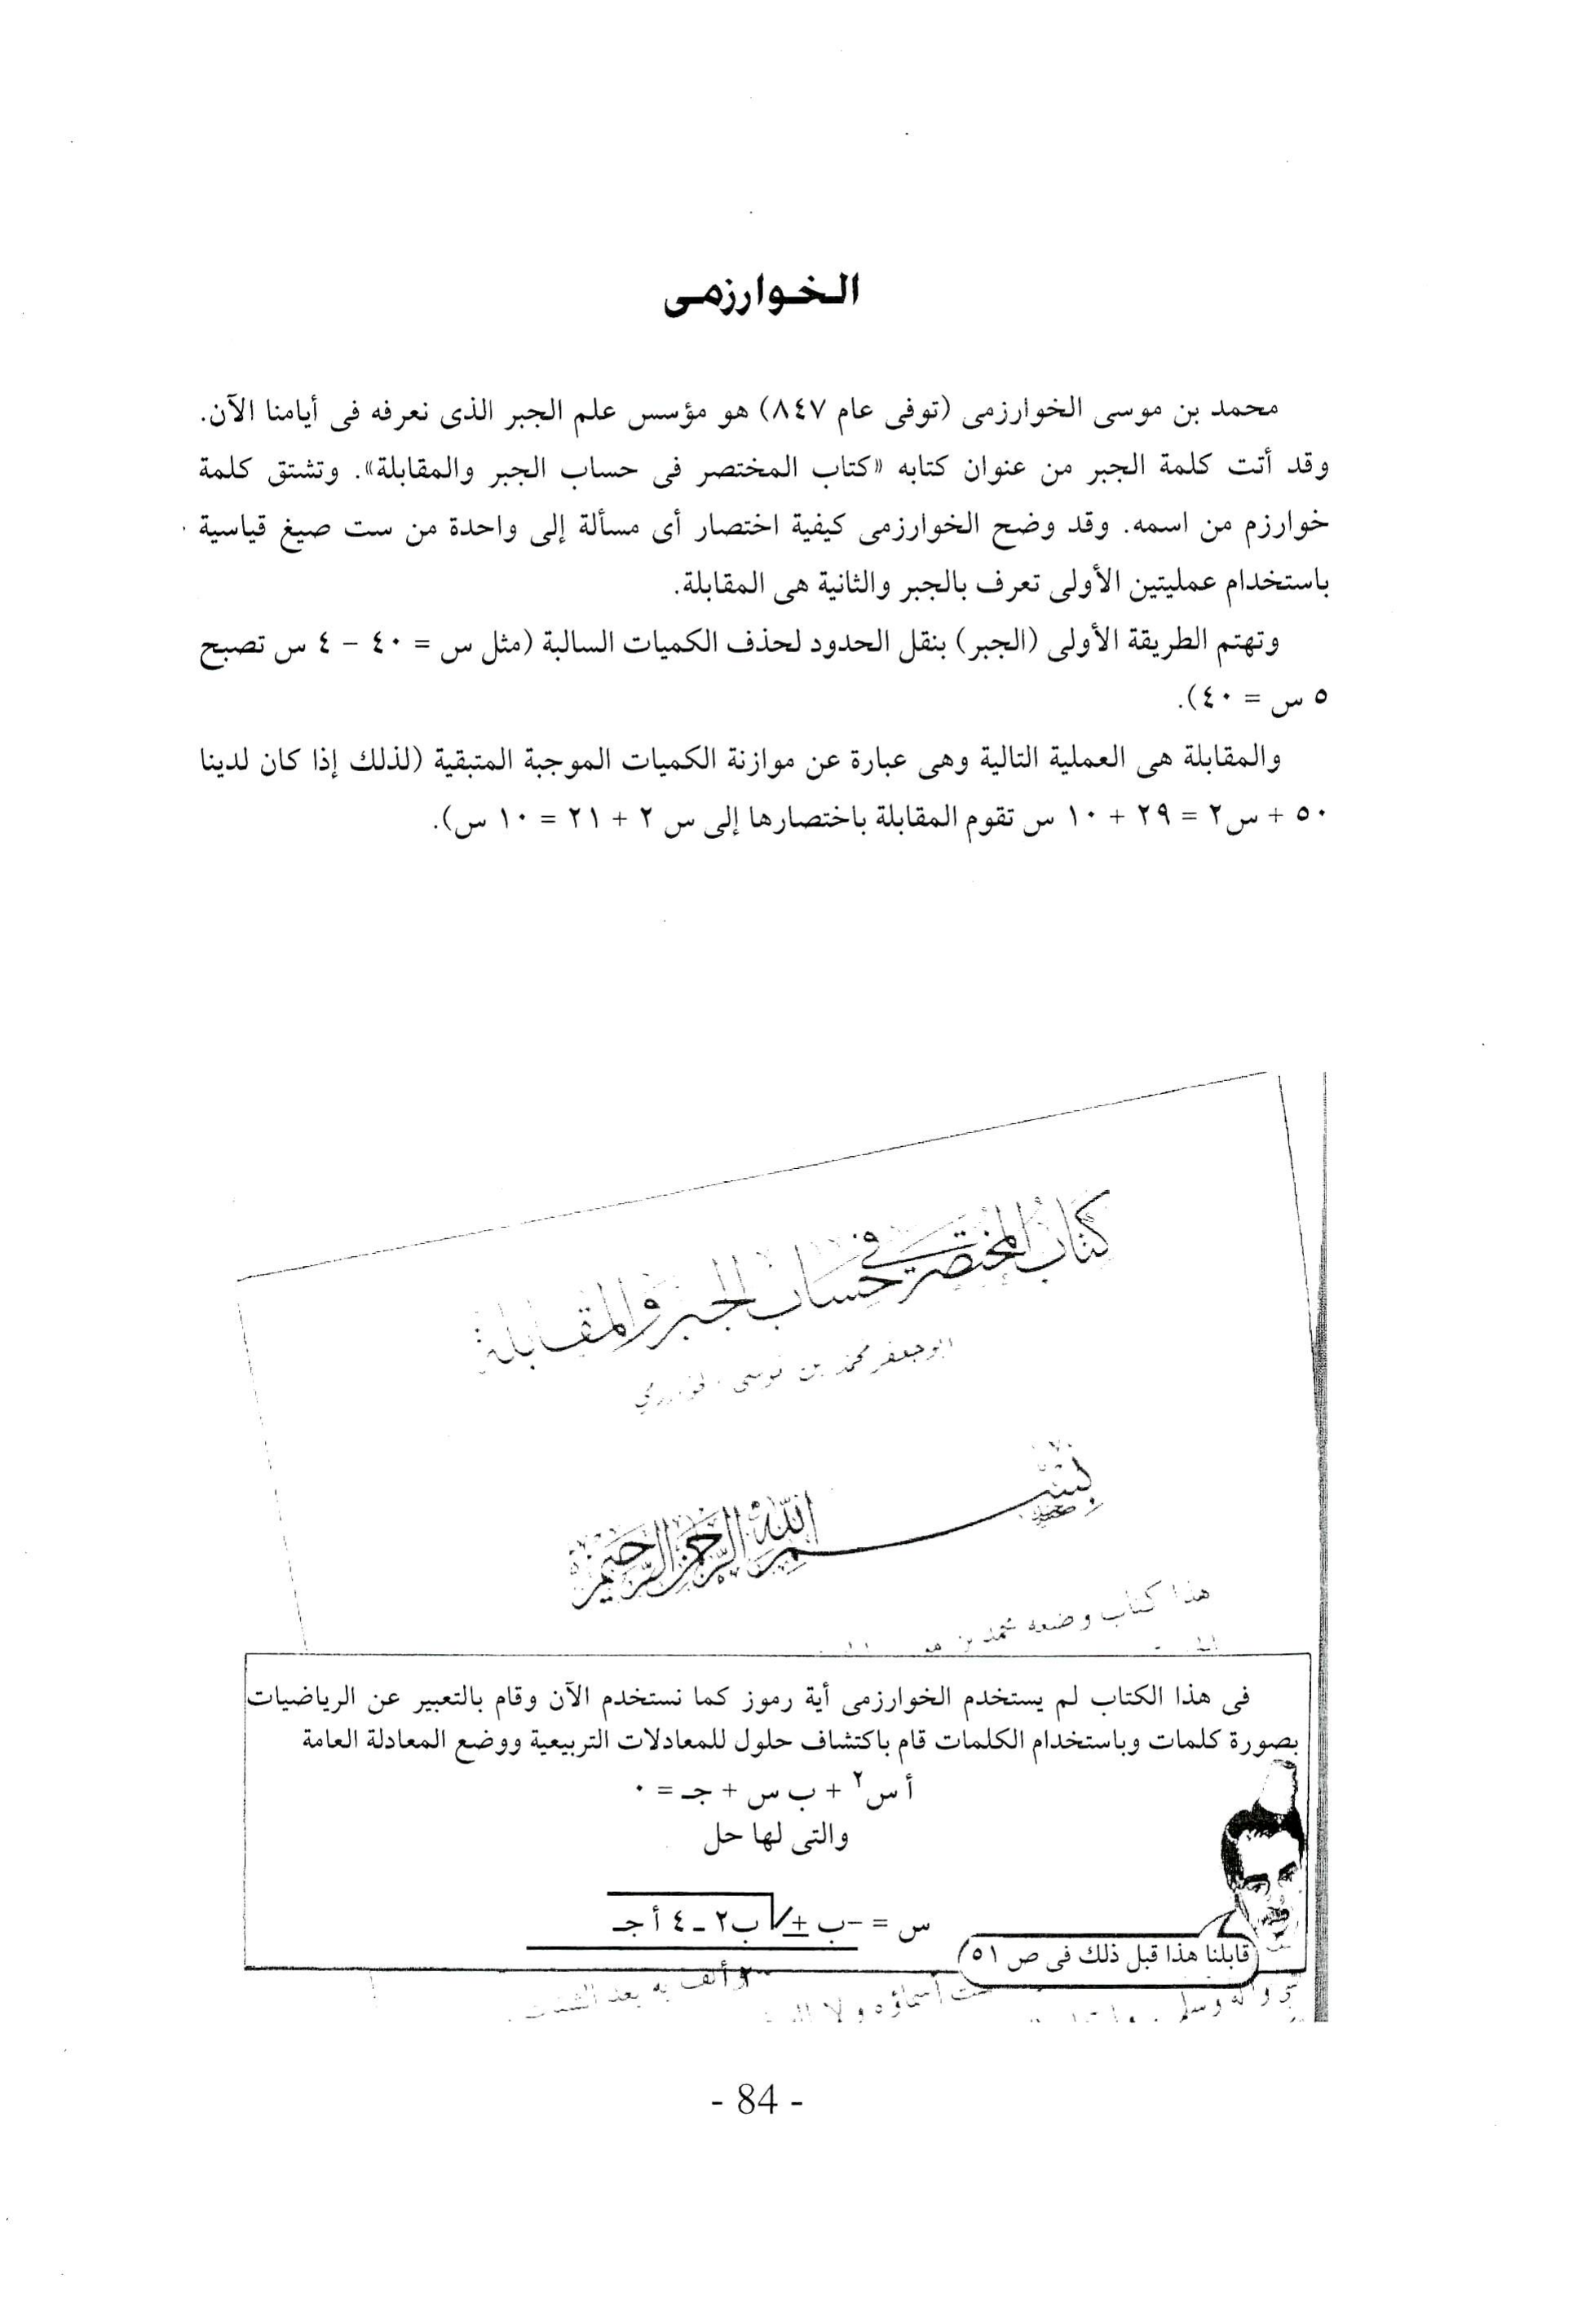 الخوارزمى
محمد بن موسى الخوارزمى (توفى عام ٨٤٧) هو مؤسس علم الجبر الذى نعرفه فى أيامنا الآن.
وقد أتت كلمة الجبر من عنوان كتابه «كتاب المختصر فى حساب الجبر والمقابلة». وتشتق كلمة
خوارزم من اسمه. وقد وضح الخوارزمى كيفية اختصار أى مسألة إلى واحدة من ست صيغ قياسية
باستخدام عمليتين الأولى تعرف بالجبر والثانية هى المقابلة.
وتهتم الطريقة الأولى (الجبر) بنقل الحدود لحذف الكميات السالبة (مثل س = ٤٠ – ٤ س تصبح
٥ س = ٤٠).
والمقابلة هى العملية التالية وهى عبارة عن موازنة الكميات الموجبة المتبقية (لذلك إذا كان لدينا
٥٠ + س٢ = ٢٩ + ١٠ س تقوم المقابلة باختصارها إلى س ٢ + ٢١ = ١٠ س).
كتاب المختصر في حساب الجبر والمقابلة
ابو جعفر محمد بن موسى
بسم الله الرحمن الرحيم
هذا كتاب وضعه محمد بن
فى هذا الكتاب لم يستخدم الخوارزمى أية رموز كما نستخدم الآن وقام بالتعبير عن الرياضيات
بصورة كلمات وباستخدام الكلمات قام باكتشاف حلول للمعادلات التربيعية ووضع المعادلة العامة
أ س٢ + ب س + جـ = ٠
والتى لها حل
س = –ب ± √ب٢ ـ ٤ أ جـ
قابلنا هذا قبل ذلك فى ص ٥١)
وآله وسلم أسماؤه ولا به بعد
- 84 -